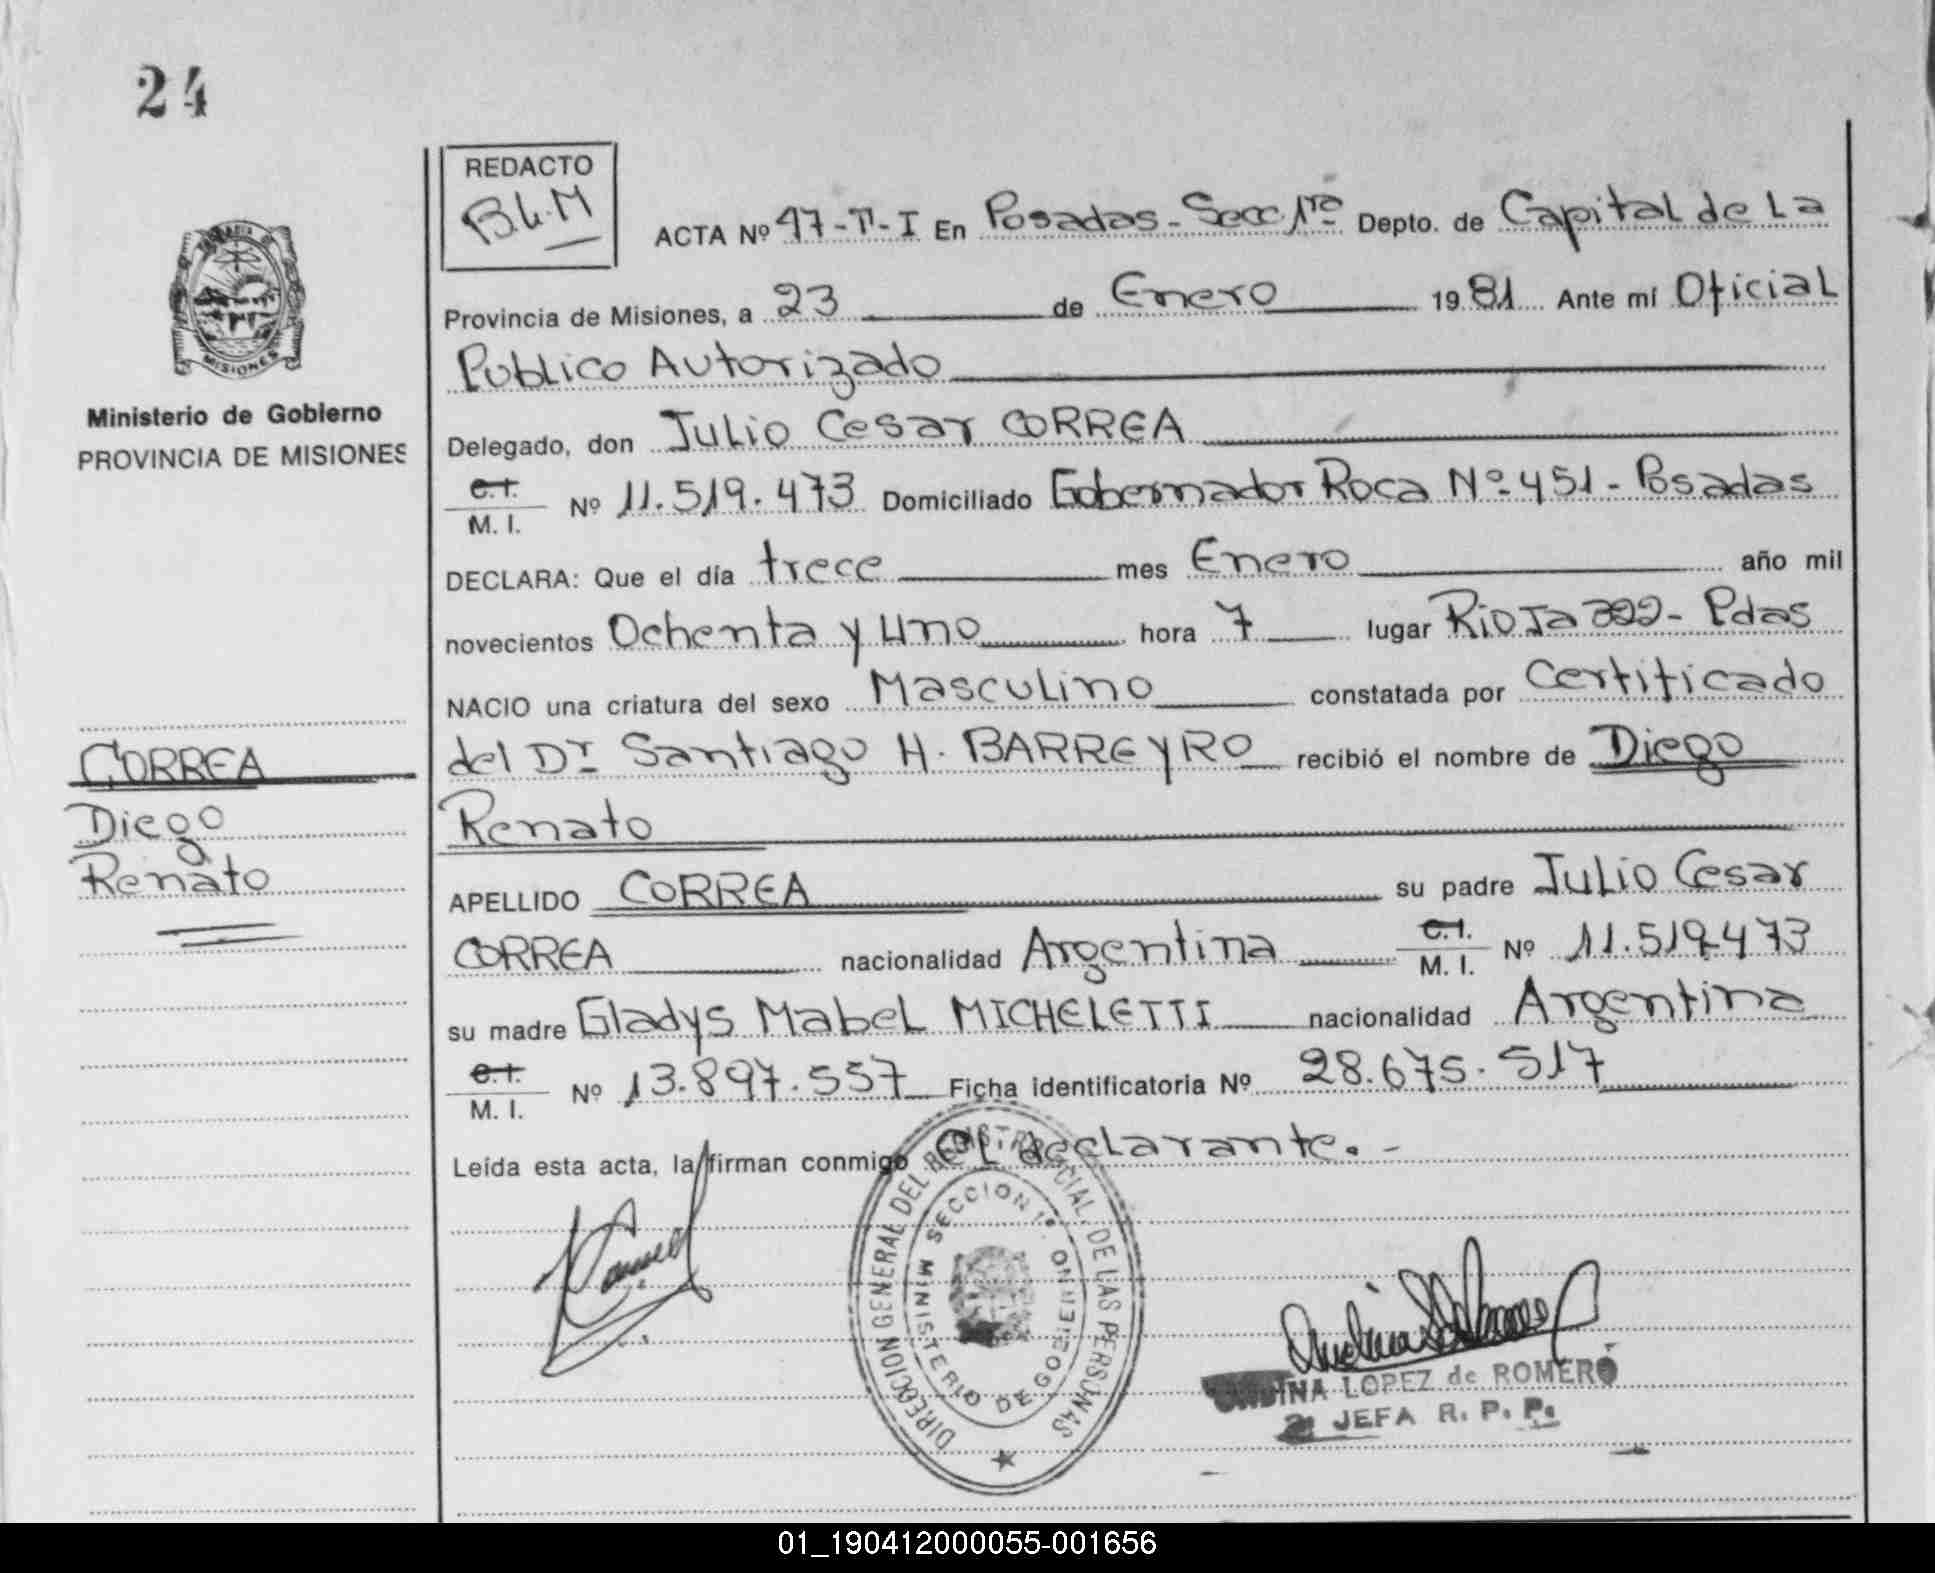 24
REDACTO
B.L.M
ACTA Nº 47-T-I En Posadas-Secc 1ra Depto. de Capital de La
Provincia de Misiones, a 23 de Enero 1981 Ante mí Oficial
Publico Autorizado
Delegado, don Julio Cesar CORREA
C.I. M. I. Nº 11.519.473 Domiciliado Gobernador Roca Nº 451 - Posadas
DECLARA: Que el día trece mes Enero año mil
novecientos Ochenta y Uno hora 7 lugar Rioja - Pdas
NACIO una criatura del sexo Masculino constatada por Certificado
del Dr Santiago H. BARREYRO recibió el nombre de Diego
Renato
APELLIDO CORREA su padre Julio Cesar
CORREA nacionalidad Argentina C.I. M. I. Nº 11.519.473
su madre Gladys Mabel MICHELETTI nacionalidad Argentina
C.I. M. I. Nº 13.897.557 Ficha identificatoria Nº 28.675.517
Leída esta acta, la firman conmigo el declarante.-
MISIONES
Ministerio de Gobierno
PROVINCIA DE MISIONES
CORREA
Diego
Renato
DIRECCION GENERAL DEL REGISTRO PROVINCIAL DE LAS PERSONAS
SECCION 1ª
MINISTERIO DE GOBIERNO
LOPEZ de ROMERO
JEFA R. P. P.
01_190412000055-001656